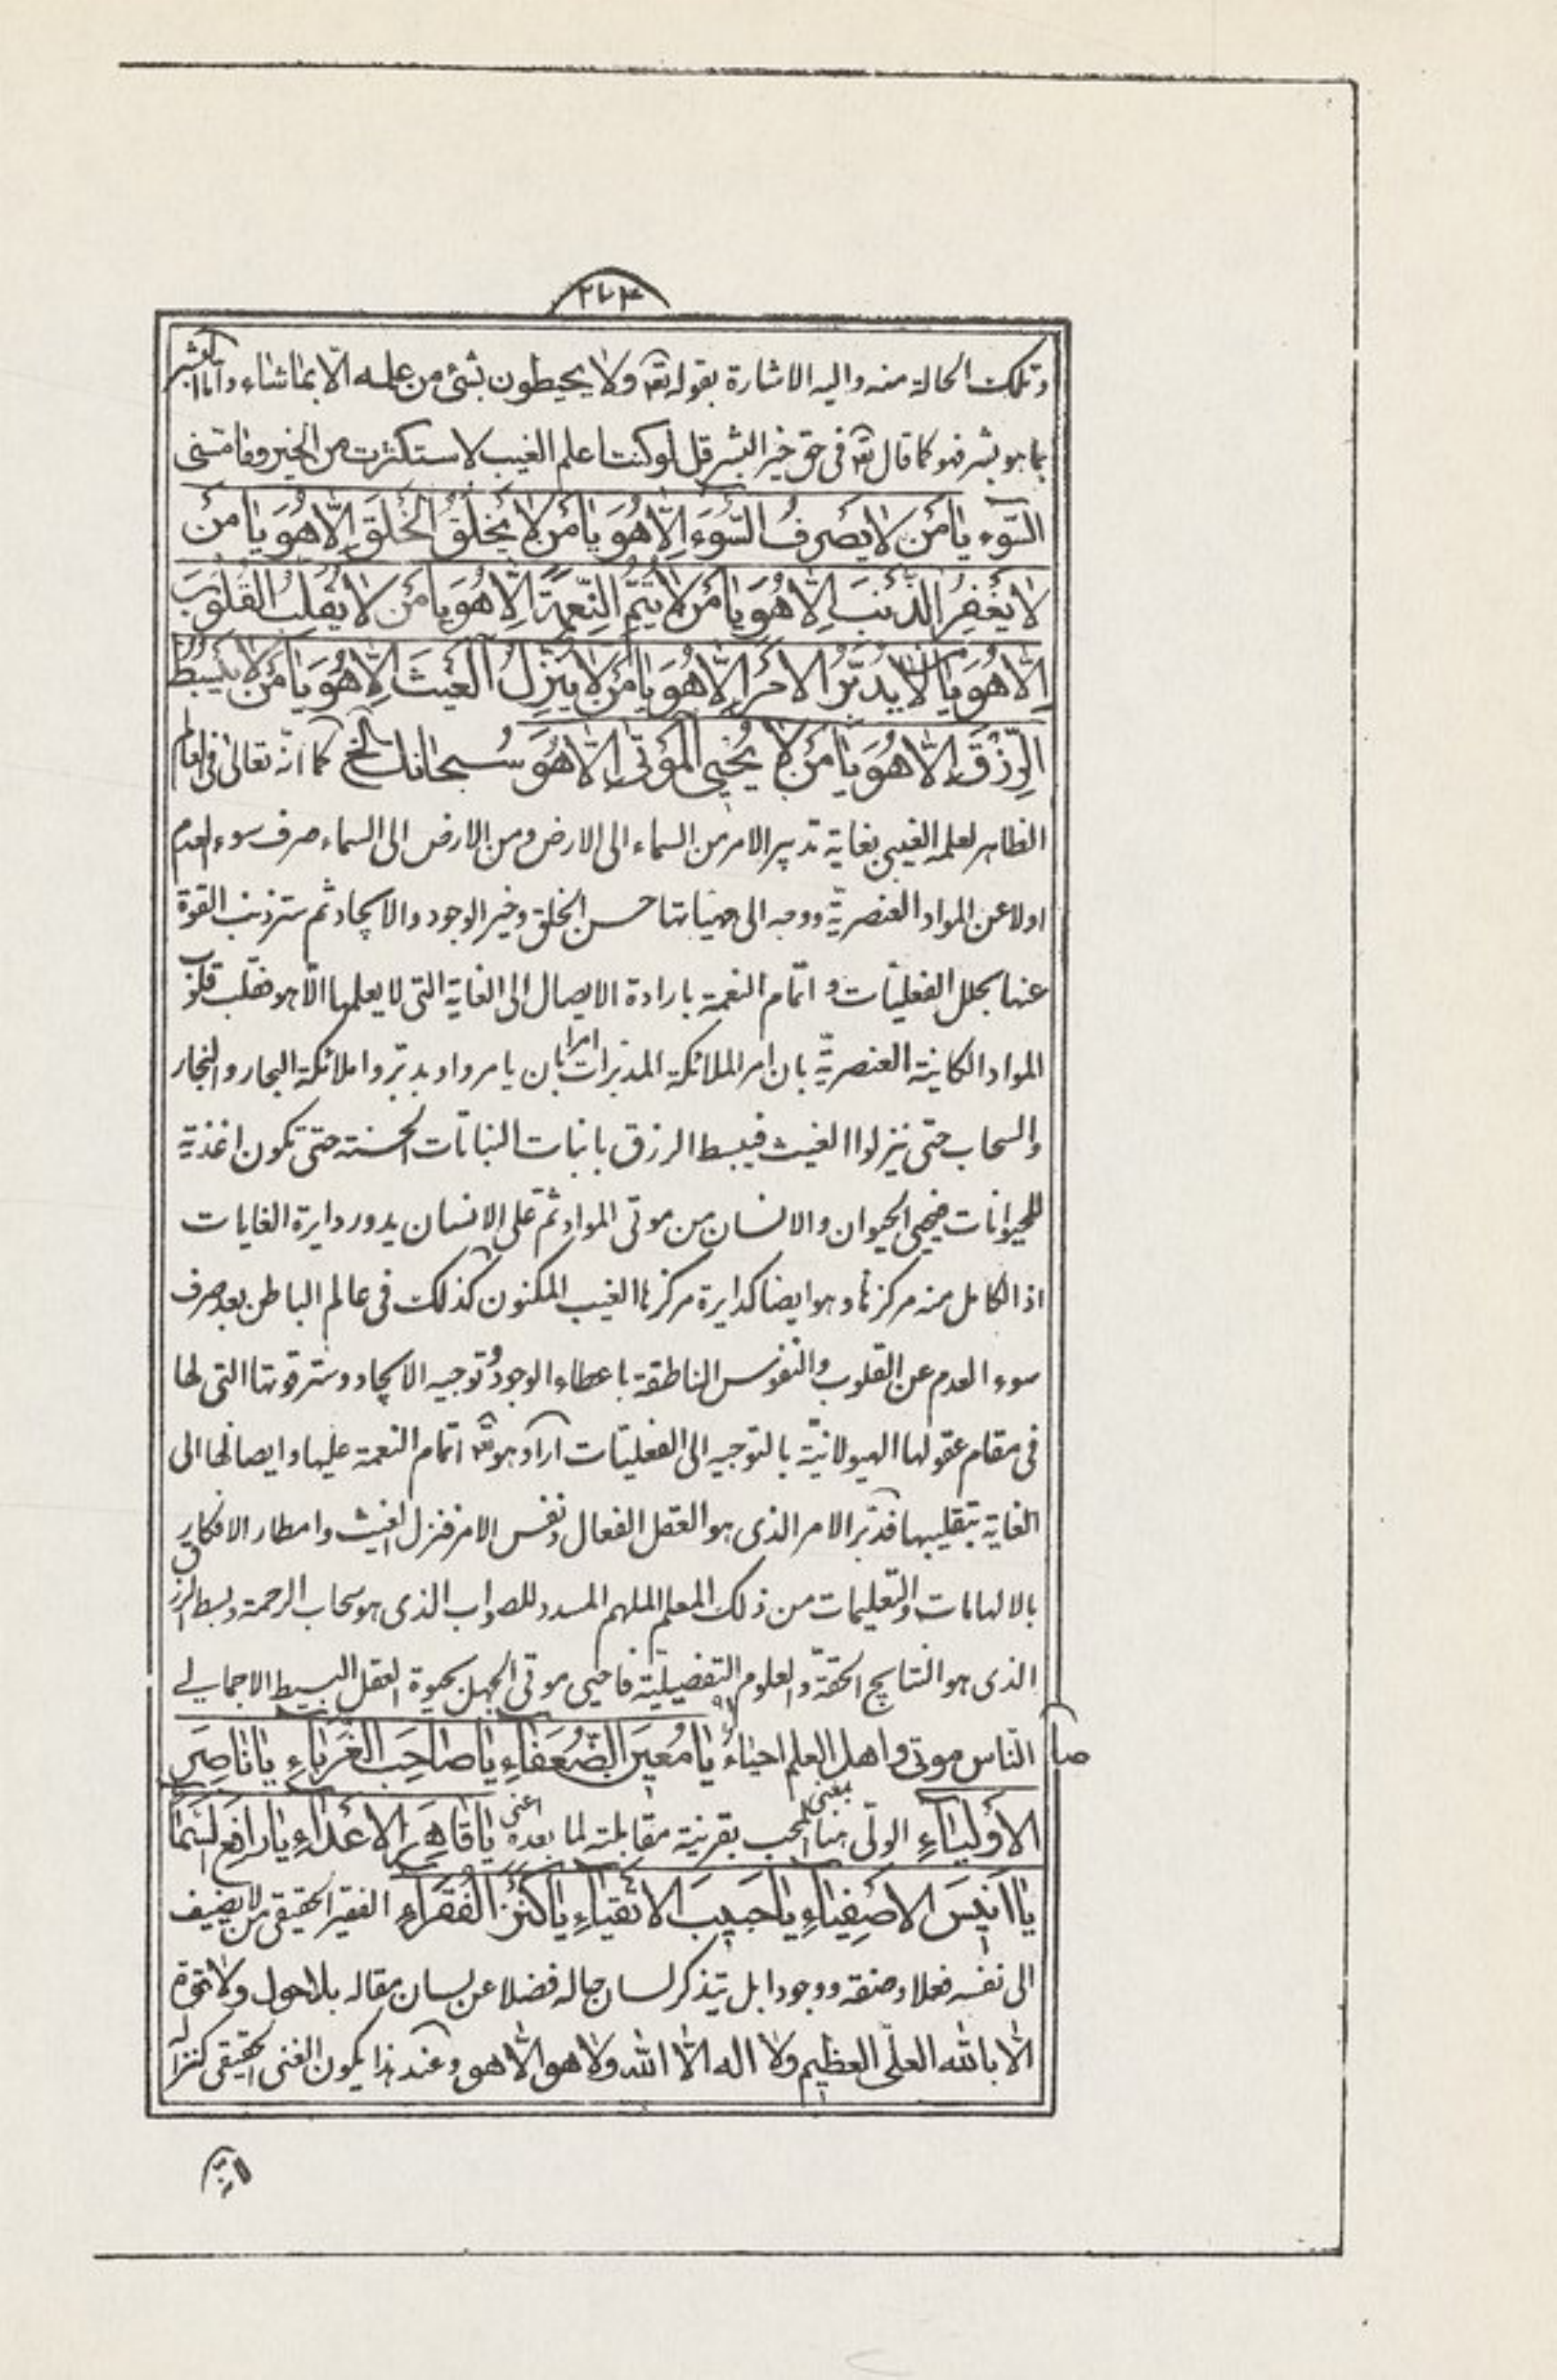 ٢٧٣
وتلك الحالة منه واليه الاشارة بقوله تعہ ولا يحيطون بشئ من علمه الّا بما شاء واما البشر
بما هو بشر فهو كما قال تعہ فى حق خير البشر قل لو كنت اعلم الغيب لاستكثرت من الخير وما مسّنى
السّوء يا مَنْ لا يَصْرِفُ السُّوءَ اِلّا هُوَ يا مَنْ لا يَخْلُقُ الْخَلْقَ اِلّا هُوَ يا مَنْ
لا يَغْفِرُ الذَّنْبَ اِلّا هُوَ يا مَنْ لا يُتِمُّ النِّعْمَةَ اِلّا هُوَ يا مَنْ لا يُقَلِّبُ الْقُلُوبَ
اِلّا هُوَ يا من لا يُدَبِّرُ الْاَمْرَ اِلّا هُوَ يا مَنْ لا يُنَزِّلُ الْغَيْثَ اِلّا هُوَ يا مَنْ لا يَبْسُطُ
الرِّزْقَ اِلّا هُوَ يا مَنْ لا يُحْيِى الْمَوْتى اِلّا هُوَ سُبحانك الخ كما انّه تعالى فى العالم
الظاهر لعلمه الغيبى بغاية تدبير الامر من السماء الى الارض ومن الارض الى السماء صرف سوء العدم
اولا عن المواد العنصريّة ووجه الى مهيّاتها حسن الخلق وخير الوجود والايجاد ثم ستر ذنب القوة
عنها بحلل الفعليّات واتمام النعمة بارادة الايصال الى الغاية التى لا يعلمها الّا هو فقلب قلوب
المواد الكاينة العنصريّة بان امر الملائكة المدبّرات امرا بان يامروا ويدبّروا ملائكة البحار والبخار
والسحاب حتى ينزلوا الغيث فيبسط الرزق بانبات النباتات الحسنة حتى تكون اغذية
للحيوانات فيحيى الحيوان والانسان من موتى المواد ثم على الانسان يدور دايرة الغايات
اذ الكامل منه مركزها وهو ايضا كدايرة مركزها الغيب المكنون كذلك فى عالم الباطن بعد صرف
سوء العدم عن القلوب والنفوس الناطقة باعطاء الوجود وتوجيه الايجاد وستر قوتها التى لها
فى مقام عقولها الهيولانيّة بالتوجيه الى الفعليّات اراد هو تعہ اتمام النعمة عليها وايصالها الى
الغاية بتقليبها فدبّر الامر الذى هو العقل الفعال ونفس الامر فنزل الغيث وامطار الافكار
بالالهامات والتعليمات من ذلك المعلم الملهم المسدد للصواب الذى هو سحاب الرحمة وبسط الرزق
الذى هو النتايج الحقّة والعلوم التفصيليّة فاحيى موتى الجهل بحيوة العقل البسيط الاجمالى
النّاس موتى واهل العلم احياءُ يا مُعينَ الضُّعَفاءِ يا صاحِبَ الْغُرَباءِ يا ناصِرَ
الْاَوْلِياءِ الولّى هنا بمعنى المحب بقرينة مقابلته لما بعده اعنى يا قاهِرَ الْاَعْداءِ يا رافِعَ السَّماءِ
يا اَنيسَ الْاَصْفِياءِ يا حَبيبَ الْاَتْقِياءِ يا كَنْزَ الْفُقَراءِ الفقير الحقيقى من لا يضيف
الى نفسه فعلا وصفة ووجودا بل يتذكر لسان حاله فضلا عن لسان مقاله بلا حول ولا قوّة
الّا بالله العلىّ العظيم ولا اله الّا الله ولا هو الّا هو وعند هذا يكون الغنى الحقيقى كنزا له